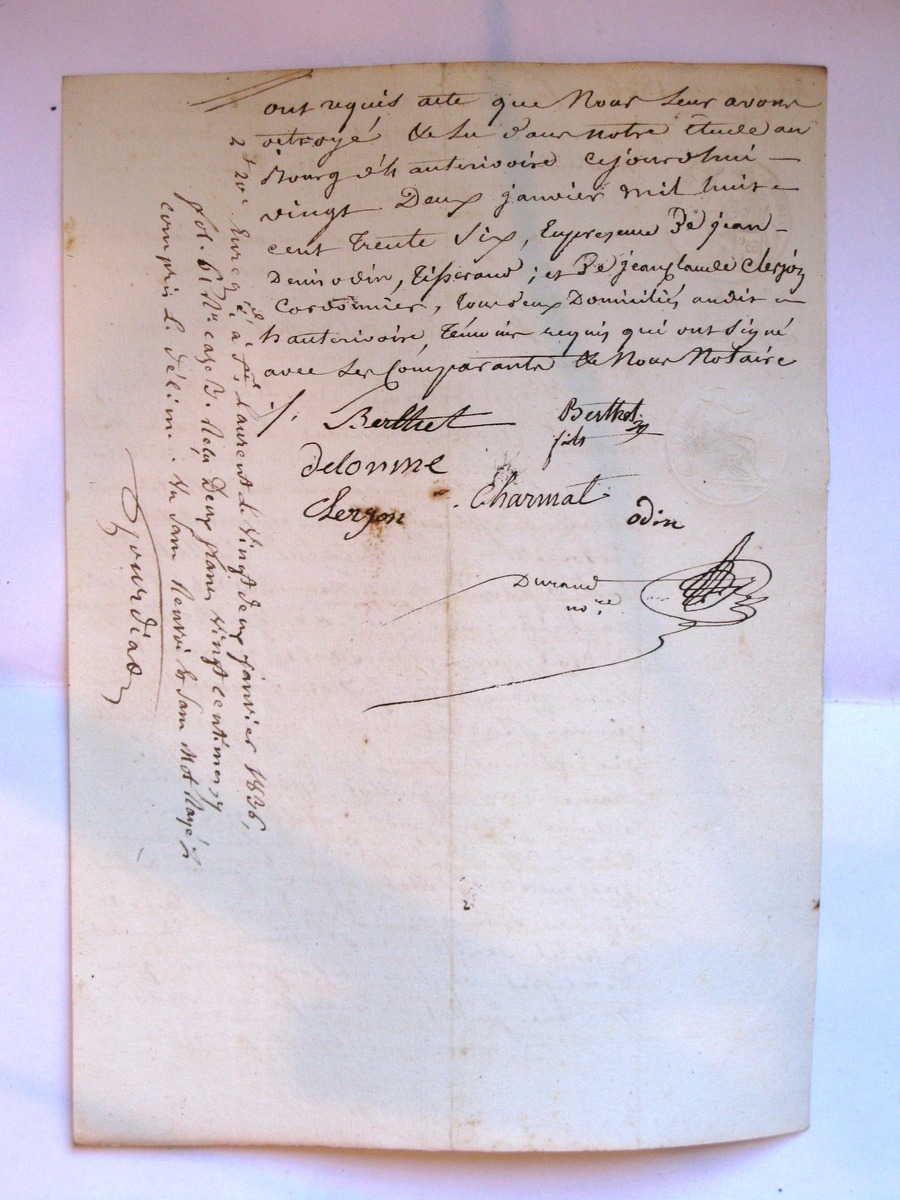 ont requis acte que Nous Leur avons
octroyé & Lu dans notre Etude au
Bourg d'hauterivoire cejourd'hui
vingt Deux janvier mil huit
cent Trente Six, En presence De jean
Denis odin, Tisserand; et De jean claude Clerjon
Cordonnier, Tous deux Domiciliés audit
hauterivoire, Témoins requis qui ont signé
avec Les Comparants & Nous Notaire
Berthet Berthet
fils
delorme
Clerjon Charmat odin
Durand
nore
2f20c Enregé à St Laurent Le Vingt deux janvier 1836,
fol. 61 case 3. Reçu Deux francs vingt centimes
compris L. Décime. Sans Renvoi & Sans Mot Rayé